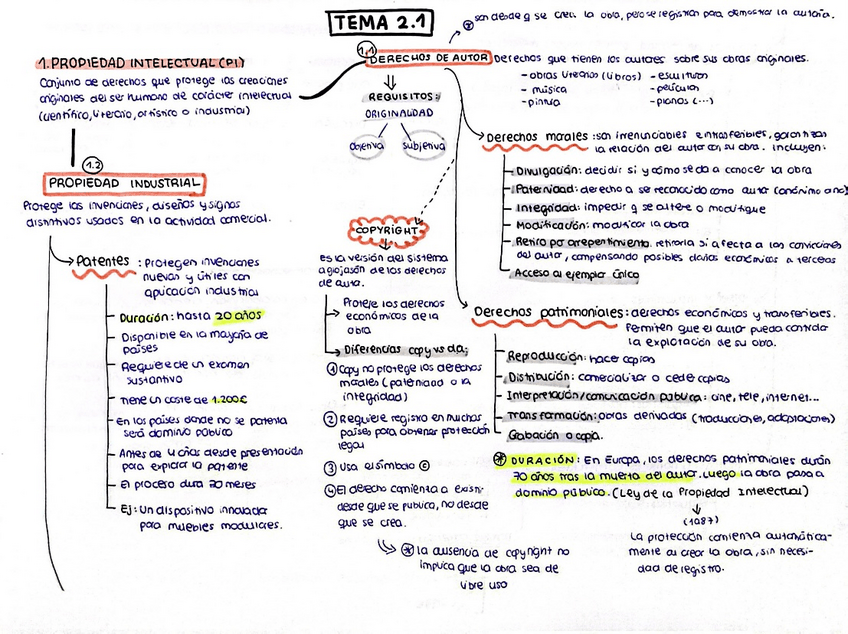 TEMA 2.1
son desde q se crea la obra, pero se registran para demostrar la autoría.
1. PROPIEDAD INTELECTUAL (PI)
Conjunto de derechos que protege las creaciones
originales del ser humano de carácter intelectual
(científico, literario, artístico o industrial)
1.1
DERECHOS DE AUTOR
Derechos que tienen los autores sobre sus obras originales.
- obras literarias (libros)
- música
- pintura
- esculturas
- películas
- planos (...)
REQUISITOS:
ORIGINALIDAD
objetiva
subjetiva
Derechos morales: son irrenunciables e intransferibles, garantizan
la relación del autor con su obra. incluyen:
Divulgación: decidir si y cómo se da a conocer la obra
Paternidad: derecho a ser reconocido como autor (anónimo o no)
Integridad: impedir q se altere o modifique
Modificación: modificar la obra
Retiro por arrepentimiento: retirarla si afecta a las convicciones
del autor, compensando posibles daños económicos a terceros
Acceso al ejemplar único
1.2
PROPIEDAD INDUSTRIAL
Protege las invenciones, diseños y signos
distintivos usados en la actividad comercial.
Patentes: Protegen invenciones
nuevas y útiles con
aplicación industrial
Duración: hasta 20 años
Disponible en la mayoría de
países
Requiere de un examen
sustantivo
Tiene un coste de 1.200€
En los países donde no se patenta
será dominio público
Antes de 4 años desde presentación
para explotar la patente
El proceso dura 20 meses
Ej: Un dispositivo innovador
para muebles modulares.
COPYRIGHT
es la versión del sistema
anglosajón de los derechos
de autor.
Proteje los derechos
económicos de la
obra
Diferencias copy vs da:
① Copy no protege los derechos
morales (paternidad o la
integridad)
② Requiere registro en muchos
países para obtener protección
legal
③ Usa el símbolo ©
④ El derecho comienza a existir
desde que se publica, no desde
que se crea.
* la ausencia de copyright no
implica que la obra sea de
libre uso
Derechos patrimoniales: derechos económicos y transferibles.
Permiten que el autor pueda controlar
la explotación de su obra.
Reproducción: hacer copias
Distribución: comercializar o ceder copias
Interpretación/comunicación pública: cine, tele, internet...
Transformación: obras derivadas (traducciones, adaptaciones)
Grabación o copia.
* DURACIÓN: En Europa, los derechos patrimoniales duran
70 años tras la muerte del autor. Luego la obra pasa a
dominio público. (Ley de la Propiedad Intelectual)
(1987)
La protección comienza automática-
mente al crear la obra, sin necesi-
dad de registro.